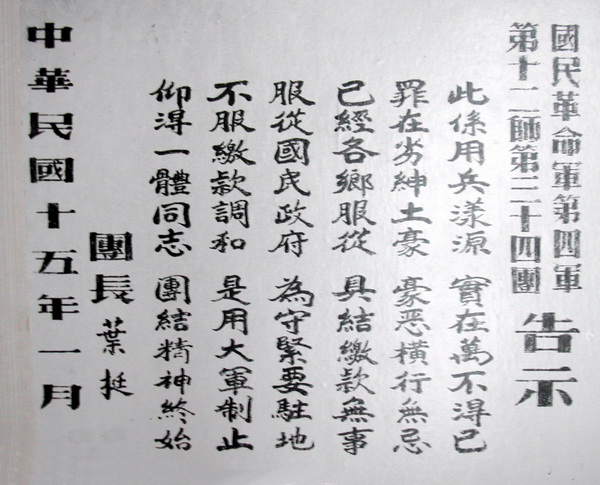 國民革命軍第四軍
第十二師第三十四團
告示
此係用兵漾源 實在萬不得已
罪在劣紳土豪 豪惡橫行無忌
已經各鄉服從 具結繳款無事
服從國民政府 為守緊要駐地
不服繳款調和 是用大軍制止
仰淂一體同志 團結精神終始
團長 葉挺
中華民國十五年一月